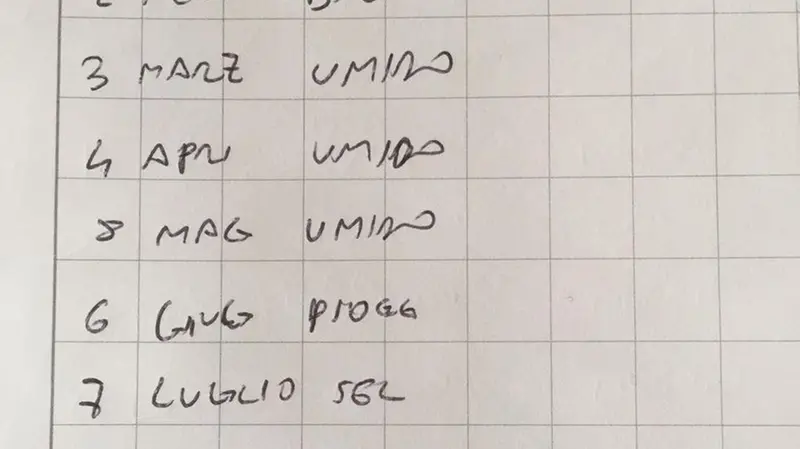 3 MARZ UMIDO
4 APR UMIDO
8 MAG UMIDO
6 GIUG PIOGG
7 LUGLIO SEL